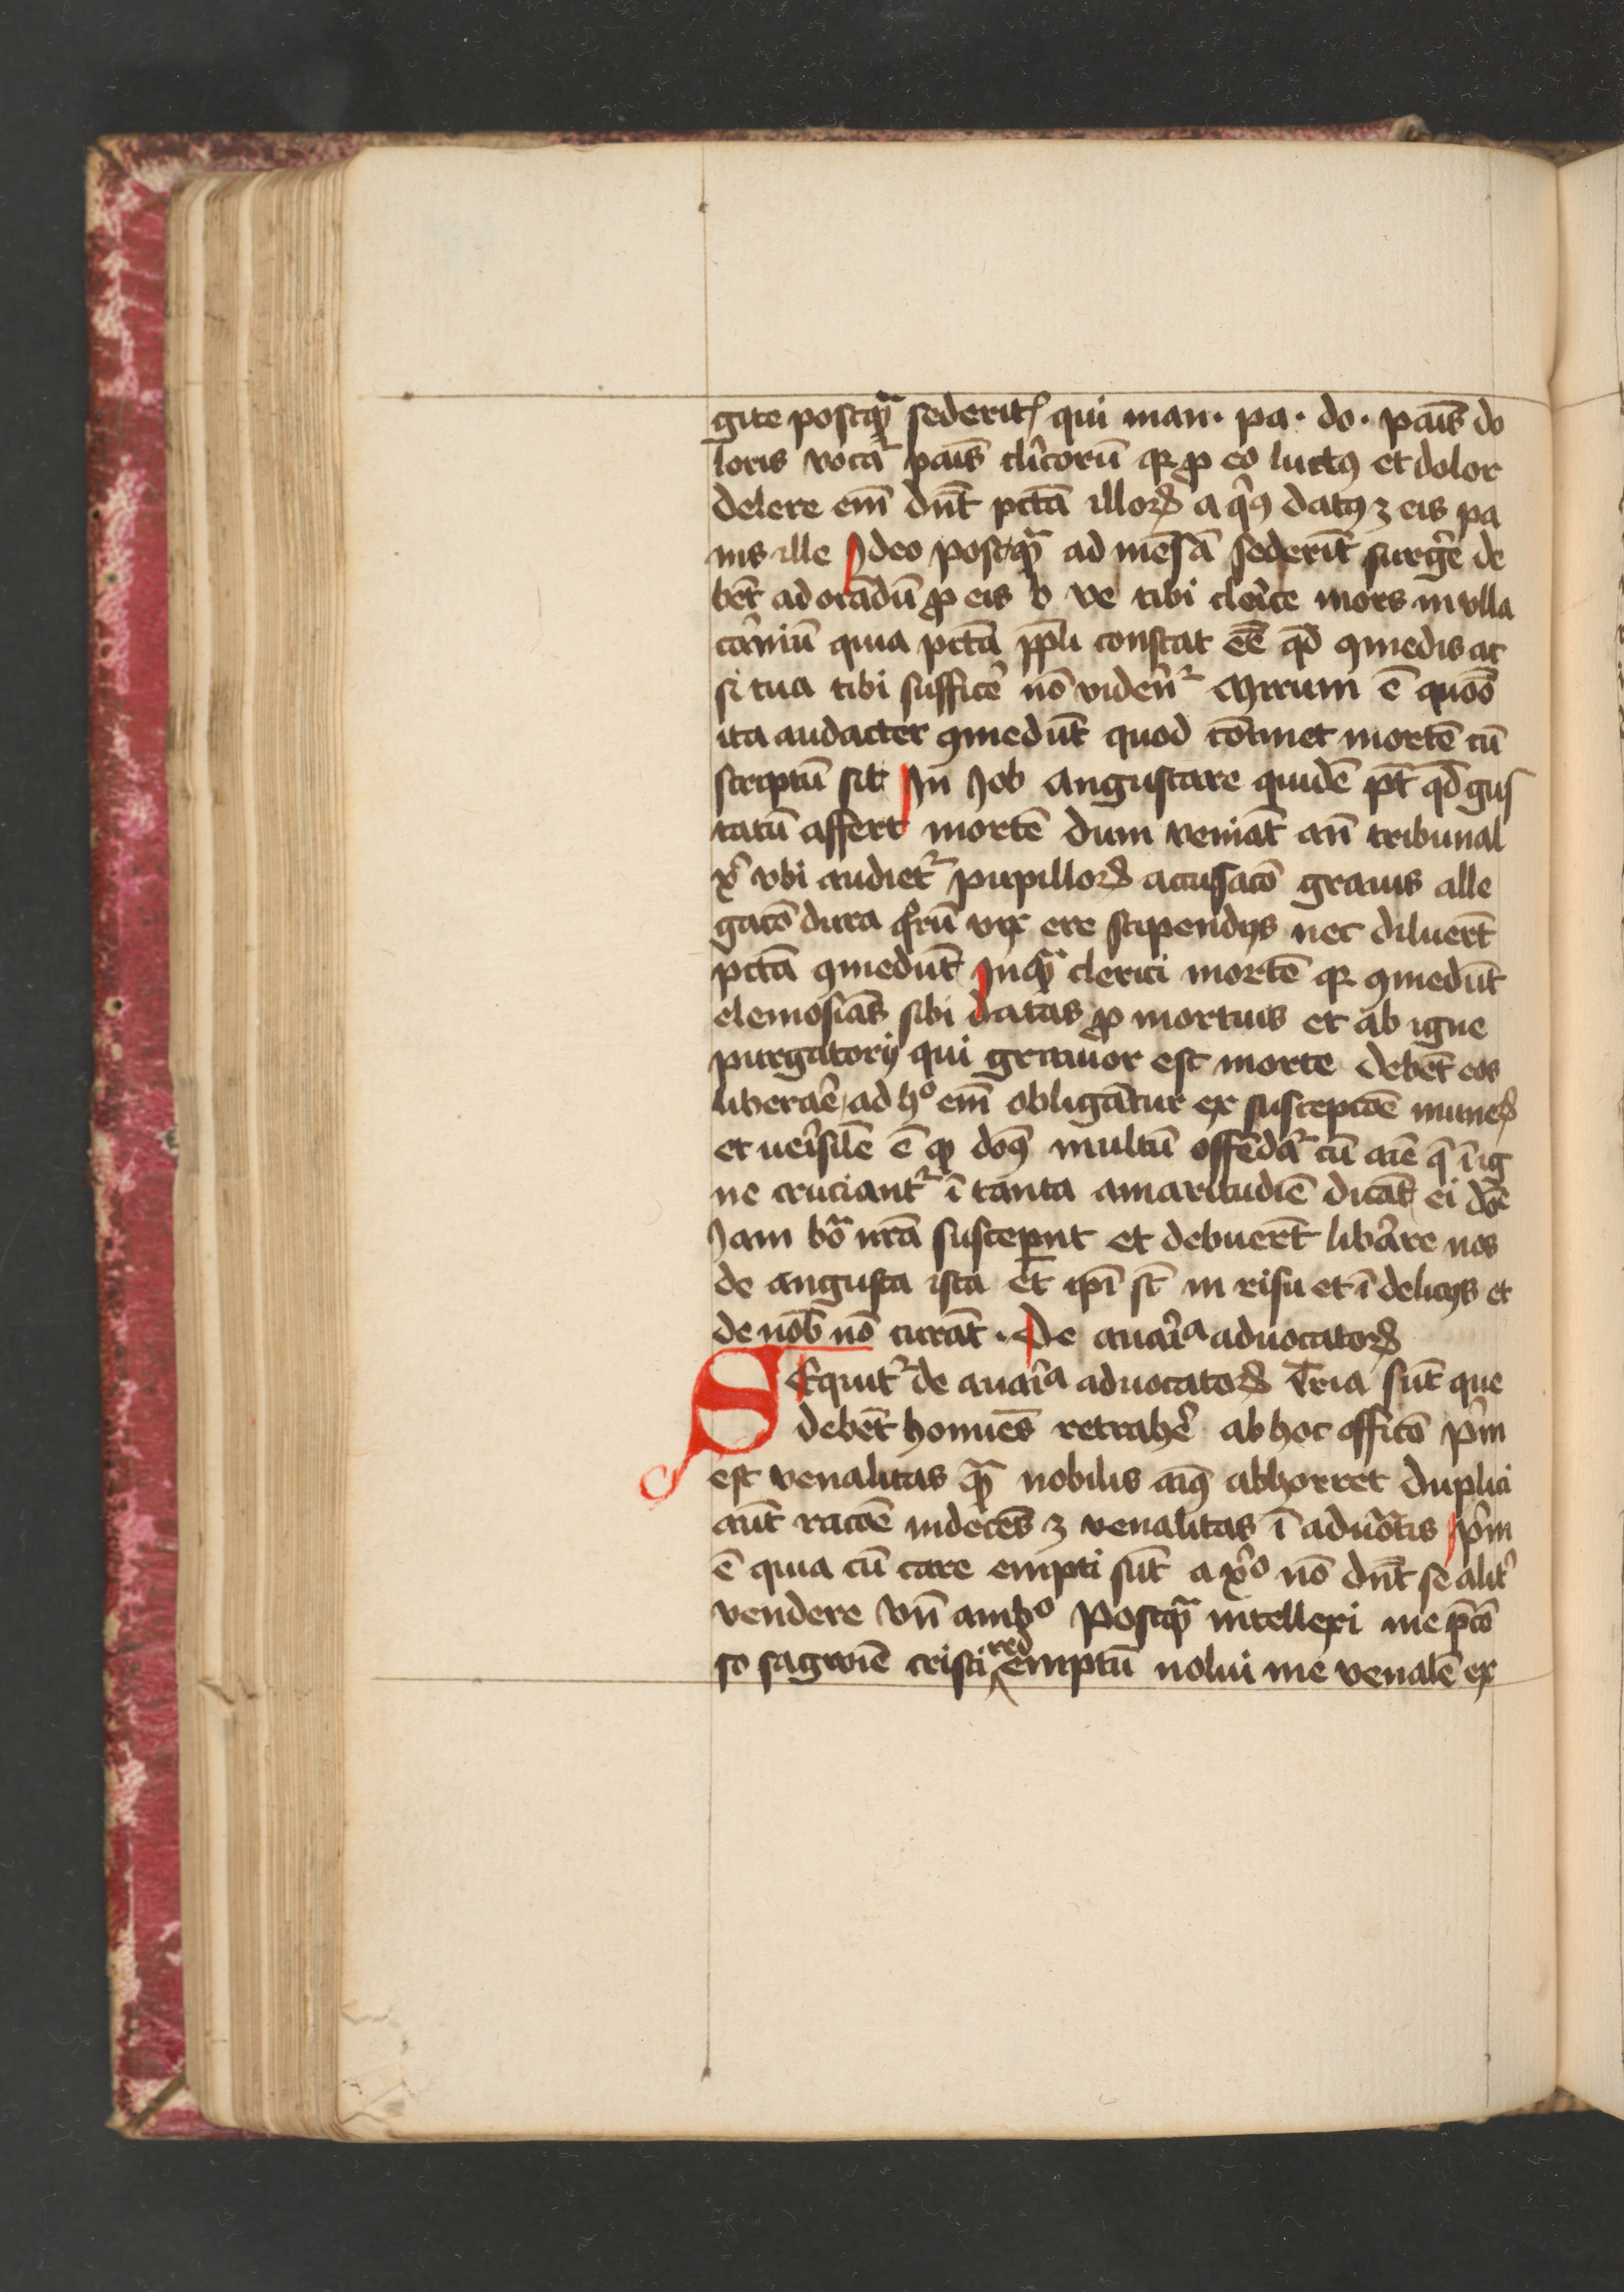 gite postqᷓ sederitꝭ qui man. pa. do. pais̄ do
loris vocaᷣ pais̄ clīcorū qꝛ ꝓ eo luctꝯ et dolor
delere em̄ dn̄t pctā illoꝝ a qͥbꝯ datꝯ ʒ eis pa
nis ille Ideo postqᷓ ad mēsā sederīt surgͤe de
bēt ad orādū ꝓ eis b ve tibi cleͥce mors in olla
carniū quia pctā ppli constat eē qd̄ ꝯmedis ac
si tua tibi sufficͤe nō viden̄ᷣ Mirum ē quōo
ita audacter ꝯmedūt quod cōtinet mortē cū
scriptū sit In Iob Angustare quidē pt̄ qd̄ gus
tatū affert mortē dum veniāt an̄ tribunal
xͥ vbi audietᷣ pupilloꝝ accusacō grauis alle
gacō dura qͦrū vix ere stipendijs nec diluerūt
pctā ꝯmedūt Inqᷓ clerici mortē qꝛ ꝯmedūt
elemosīas sibi datas ꝓ mortuis et ab igne
purgatorij qui grauior est morte debēt eos
liberaͤe ad hͦ em̄ obligātur ex suscepcōe muneꝝ
et ueͥsile ē ꝙ doꝯ multū offendaᷣ cū aīe q̄ ī ig
ne cruciantᷣ ī tanta amaritudīe dicāt ei dōe
Iam boᷓ nrā susceper̄nt et debuerūt libͤare nos
de angusta ista et ip̄i st̄ in risu et ī delicijs et
de nob̄ nō curāt . De auaͥcia aduocatoꝝ
SEquitᷣ de auaͥcia aduocatoꝝ Tria sūt que
debēt homīes retrahͤe ab hoc officō pͥm
est venalitas qᷓ nobilis aīꝯ abhorret duplici
aūt racōe indecēs ʒ venalitas ī aduocatis pͥm
ē quia cū care empti sūt a xͦo nō dn̄t se alitᷣ
vendere Vn̄ ambͦ Postqᷓ intellexi me p̄co
so sagwīe cristi redemptū nolui me venalē ex